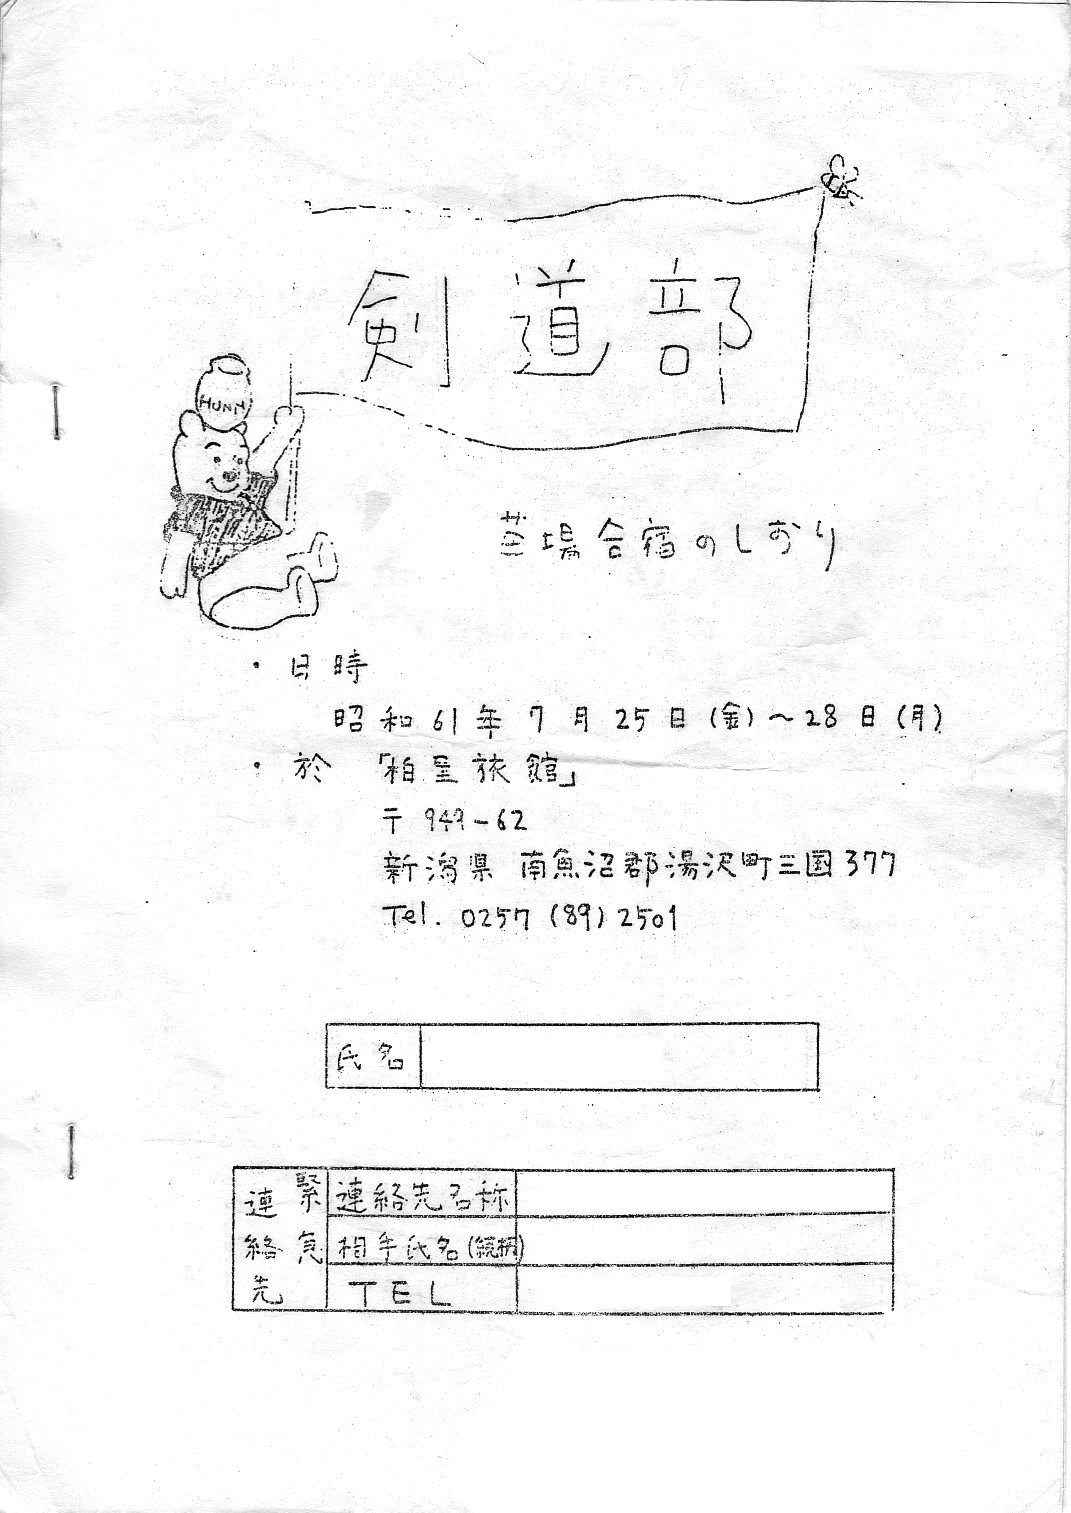 剣道部
HUNN
苗場合宿のしおり
・日時
昭和61年7月25日(金)～28日(月)
・於 「柏屋旅館」
〒949-62
新潟県 南魚沼郡湯沢町三国377
Tel. 0257 (89) 2501
氏名
緊急連絡先
連絡先名称
相手氏名(続柄)
TEL